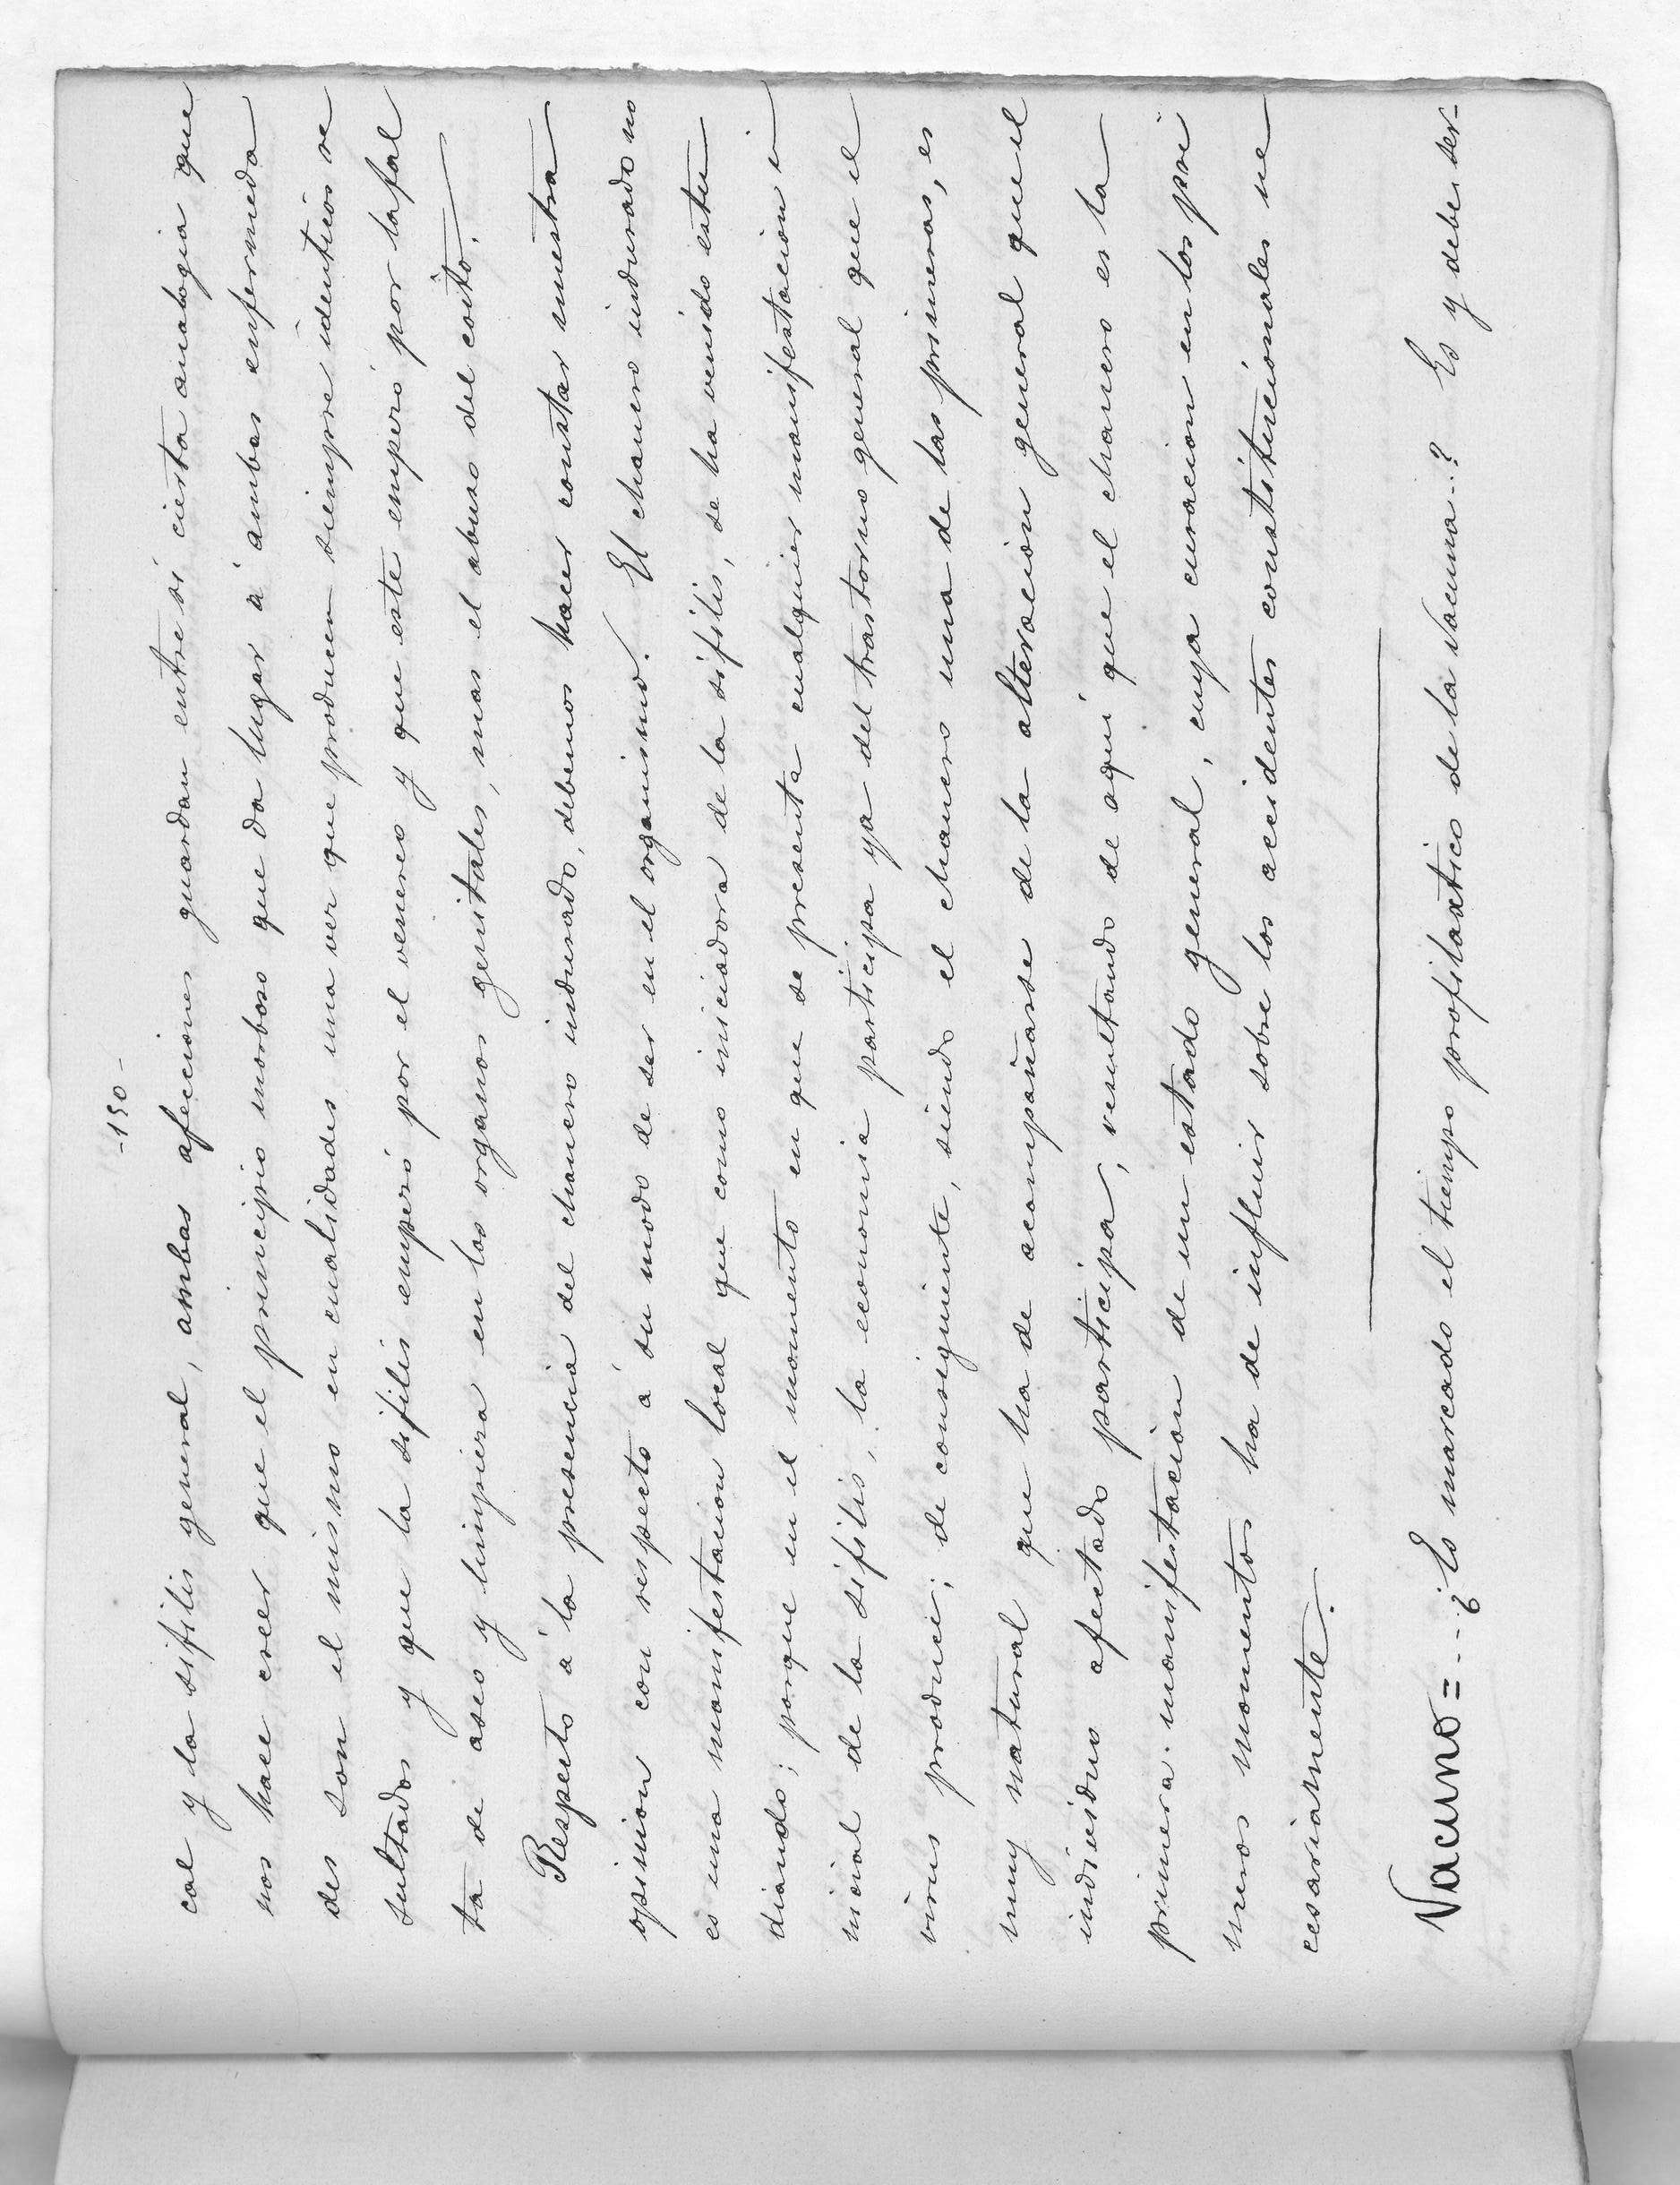 -150-
cal y la sifilis general, ambas afecciones guardan entre si cierta analogia que
nos hace creer que el principio morboso que da lugar á ambas enfermeda
des son el mismo en cualidades una vez que producen siempre identicos re
sultados y que la sifilis empezó por el venereo y que este empezó por la fal
ta de aseo y limpieza en los organos genitales, mas el abuso del coito.
Respecto á la presencia del chancro indurado, debemos hacer constar nuestra
opinion con respecto á su modo de ser en el organismo. El chancro indurado no
es una manifestacion local que como iniciadora de la sifilis, se ha venido estu
diando; porque en el momento en que se presenta cualquier manifestacion i
nicial de la sifilis, la economia participa ya del trastorno general que el
virus produce; de consiguiente, siendo el chancro una de las primeras, es
muy natural que ha de acompañarse de la alteracion general que el
individuo afectado participa, resultando de aqui que el chancro es la
primera manifestacion de un estado general, cuya curacion en los pri
meros momentos ha de influir sobre los accidentes constitucionales ne
cesariamente.
Vacuno=...¿Es marcado el tiempo profilaxtico de la vacuna..? Es y debe ser-